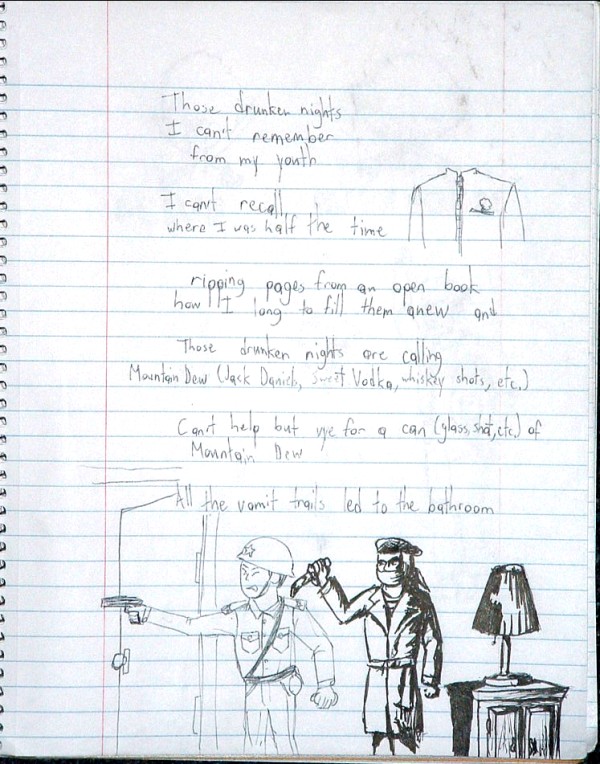 Those drunken nights
I can't remember
from my youth
I can't recall
where I was half the time
ripping pages from an open book
how I long to fill them anew and
Those drunken nights are calling
Mountain Dew (Jack Daniels, sweet Vodka, whiskey shots, etc.)
Can't help but vye for a can (glass, shot, etc.) of
Mountain Dew
All the vomit trails led to the bathroom